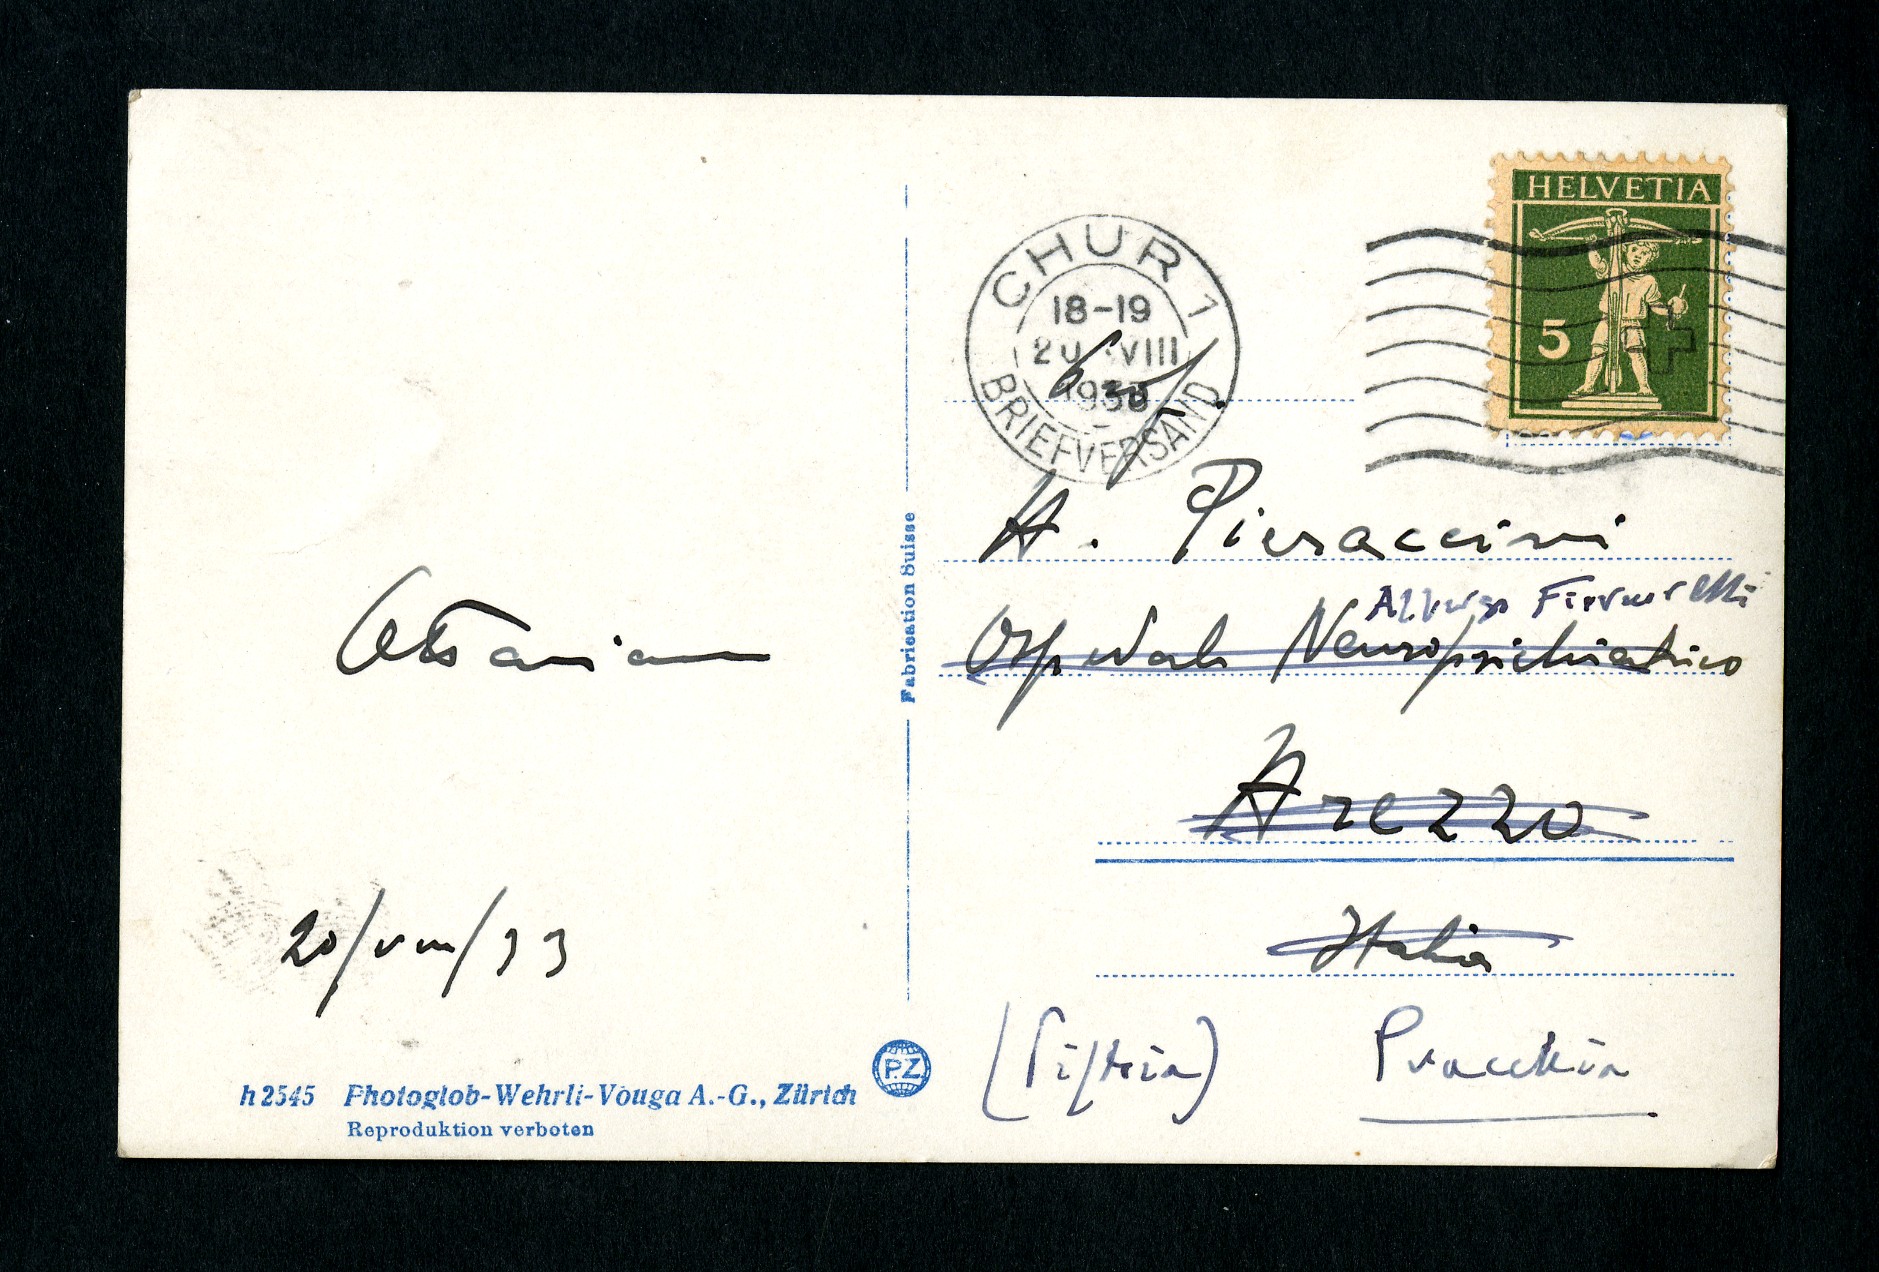 HELVETIA
5
CHUR 1
18-19
20. VIII
1933
BRIEFVERSAND
A. Pieraccini
Albergo Ferrucci
Ospedale Neuropsichiatrico
Arezzo
Italia
(Pistoia) Pracchia
Ottaviano
20/VIII/33
Fabrication Suisse
PZ
h 2545 Photoglob-Wehrli-Vouga A.-G., Zürich
Reproduktion verboten